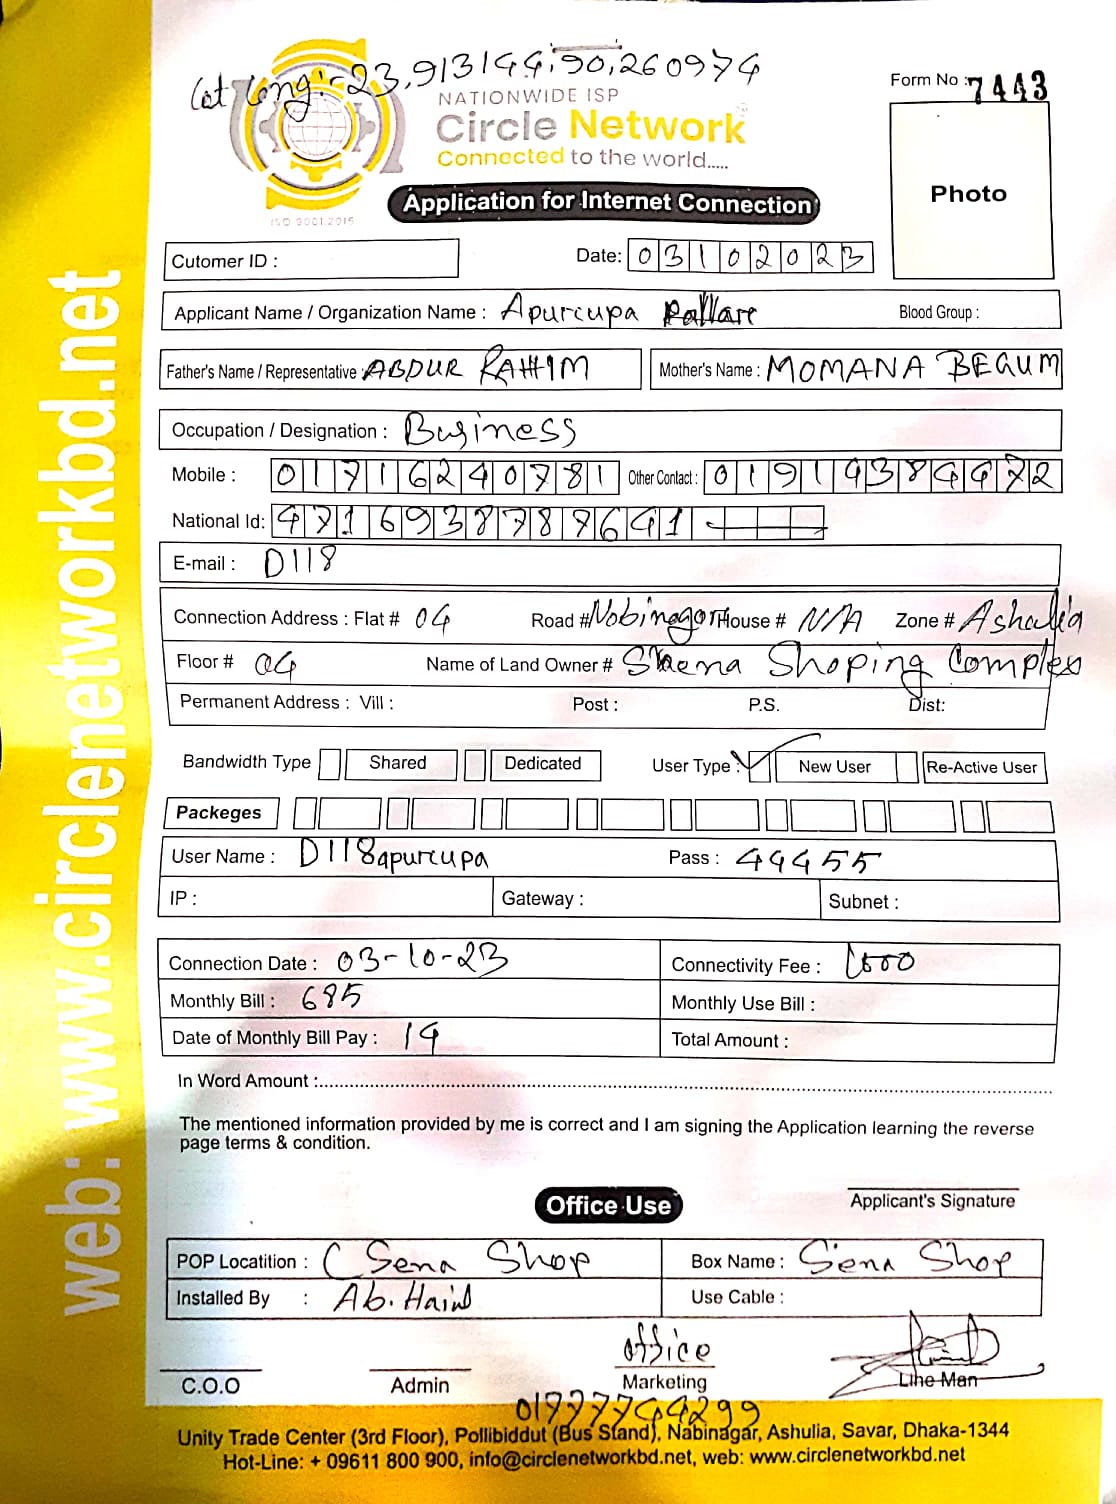 Lat Long:- 23,913144,90,260974
NATIONWIDE ISP
Circle Network
Connected to the world.....
ISO 9001:2015
Form No : 7443
Photo
Application for Internet Connection
Cutomer ID :
Date: 03102023
Applicant Name / Organization Name : Apurcupa Pallare Blood Group :
Father's Name / Representative : ABDUR RAHIM Mother's Name : MOMANA BEGUM
Occupation / Designation : Business
Mobile : 01716240781 Other Contact : 01914384472
National Id: 4716938788641
E-mail : D118
Connection Address : Flat # 04 Road # Nobinagor House # N/A Zone # Ashulia
Floor # 04 Name of Land Owner # Shena Shoping Complex
Permanent Address : Vill : Post : P.S. Dist:
Bandwidth Type Shared Dedicated User Type : New User Re-Active User
Packeges
User Name : D118apurcupa Pass : 44455
IP : Gateway : Subnet :
Connection Date : 03-10-23 Connectivity Fee : 1500
Monthly Bill : 685 Monthly Use Bill :
Date of Monthly Bill Pay : 14 Total Amount :
In Word Amount :
The mentioned information provided by me is correct and I am signing the Application learning the reverse
page terms & condition.
Applicant's Signature
Office Use
POP Locatition : C Sena Shop Box Name : Sena Shop
Installed By : Ab. Use Cable :
office
C.O.O Admin Marketing Line Man
01777744299
Unity Trade Center (3rd Floor), Pollibiddut (Bus Stand), Nabinagar, Ashulia, Savar, Dhaka-1344
Hot-Line: + 09611 800 900, info@circlenetworkbd.net, web: www.circlenetworkbd.net
web: www.circlenetworkbd.net